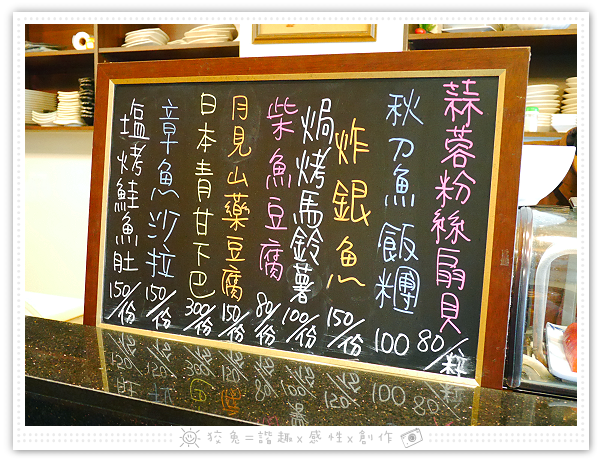 蒜蓉粉絲扇貝 80/粒
秋刀魚飯糰 100
炸銀魚 150/份
焗烤馬鈴薯 100/份
柴魚豆腐 80/份
月見山藥豆腐 150/份
日本青甘下巴 300/份
章魚沙拉 150/份
塩烤鮭魚肚 150/份
狡兔=諧趣x感性x創作